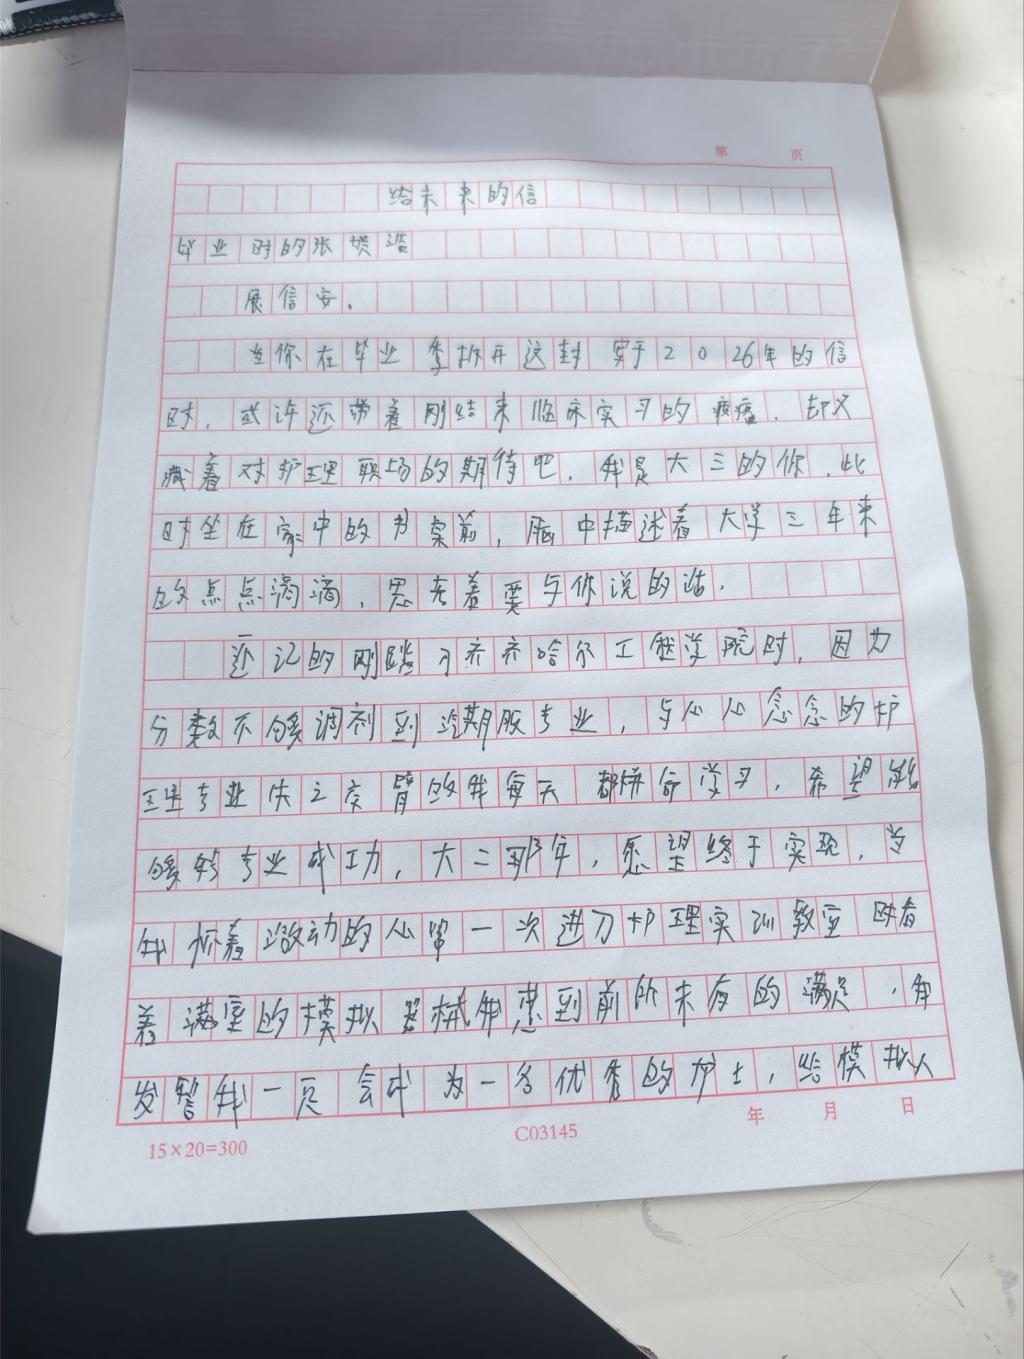 第 页
给未来的信
毕业时的张
展信安.
当你在毕业季拆开这封写于2026年的信
时,或许还带着刚结束临床实习的疲惫,却又
藏着对护理职场的期待吧.我是大三的你,此
时坐在家中的书桌前,脑中描述着大学三年来
的点点滴滴,思考着要与你说的话.
还记的刚踏入齐齐哈尔工程学院时,因为
分数不够调剂到专业,与心心念念的护
理专业失之交臂的我每天都拼命学习,希望能
够转专业成功,大二那年,愿望终于实现,当
我怀着激动的心第一次进入护理实训教室时看
着满室的模拟器械我感到前所未有的满足,我
发誓我一定会成为一名优秀的护士,给模拟人
15×20=300
C03145
年 月 日